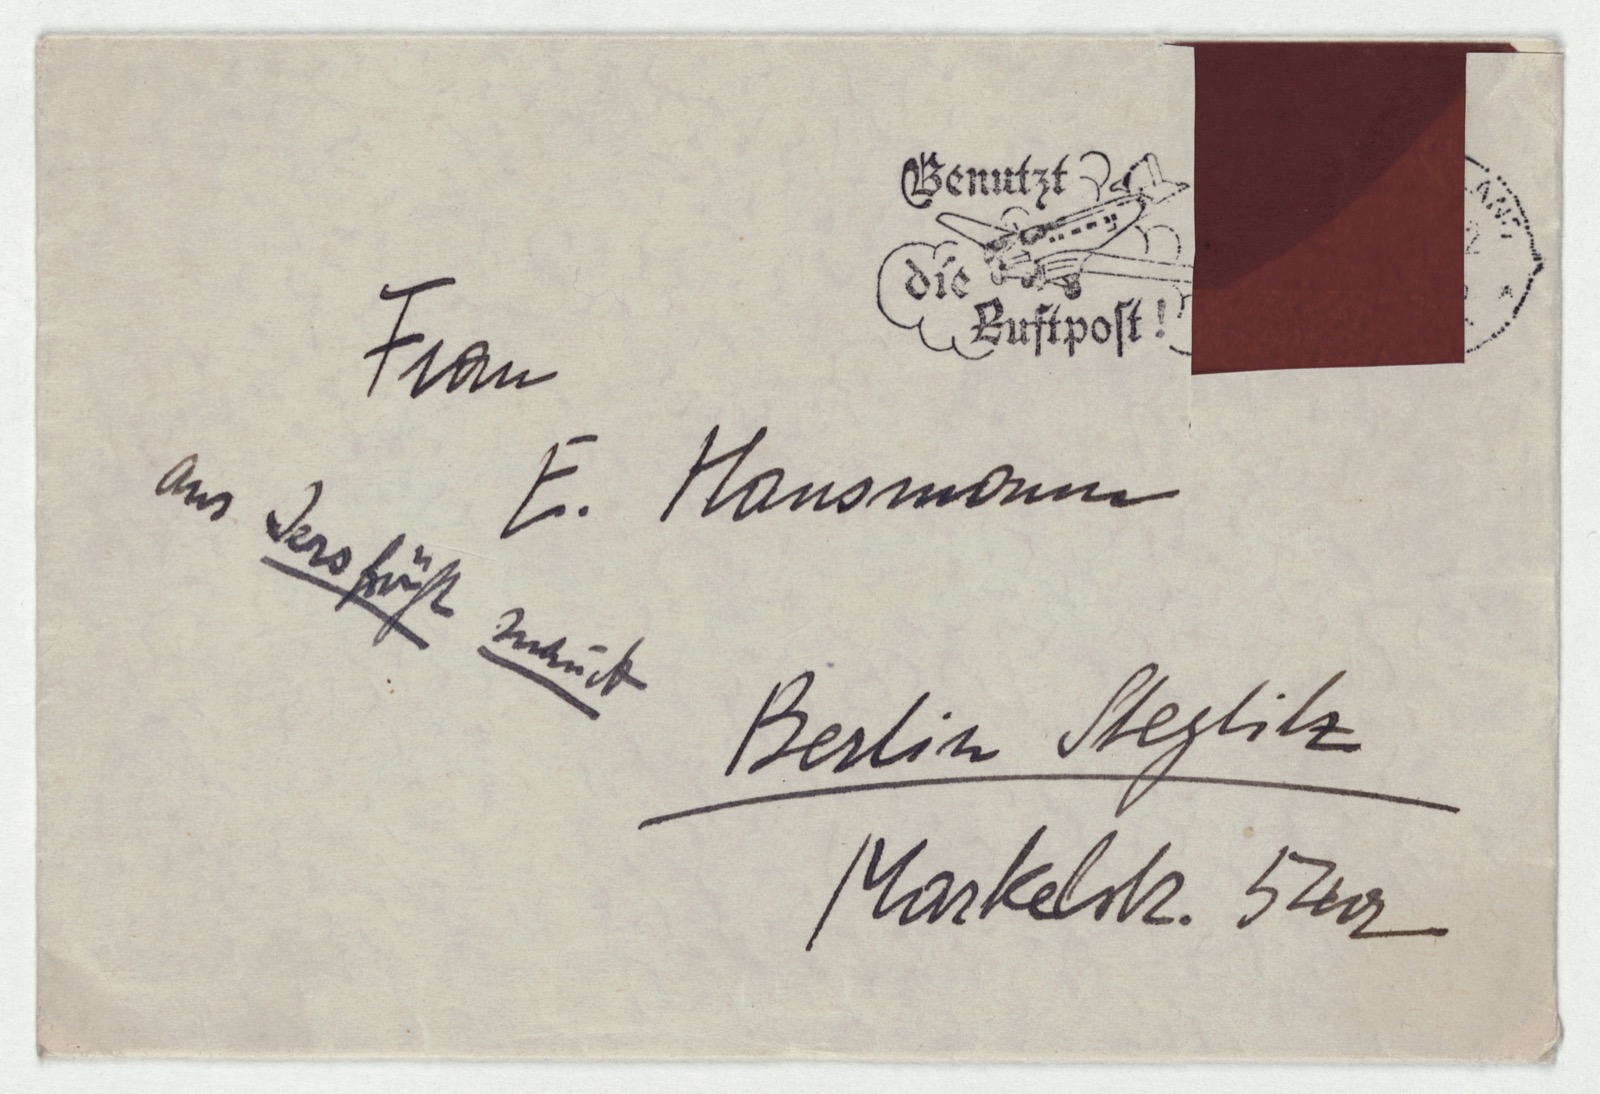 Benutzt
die
Luftpost!
Frau
E. Hausmann
aus
zurück
Berlin Steglitz
Markelstr.